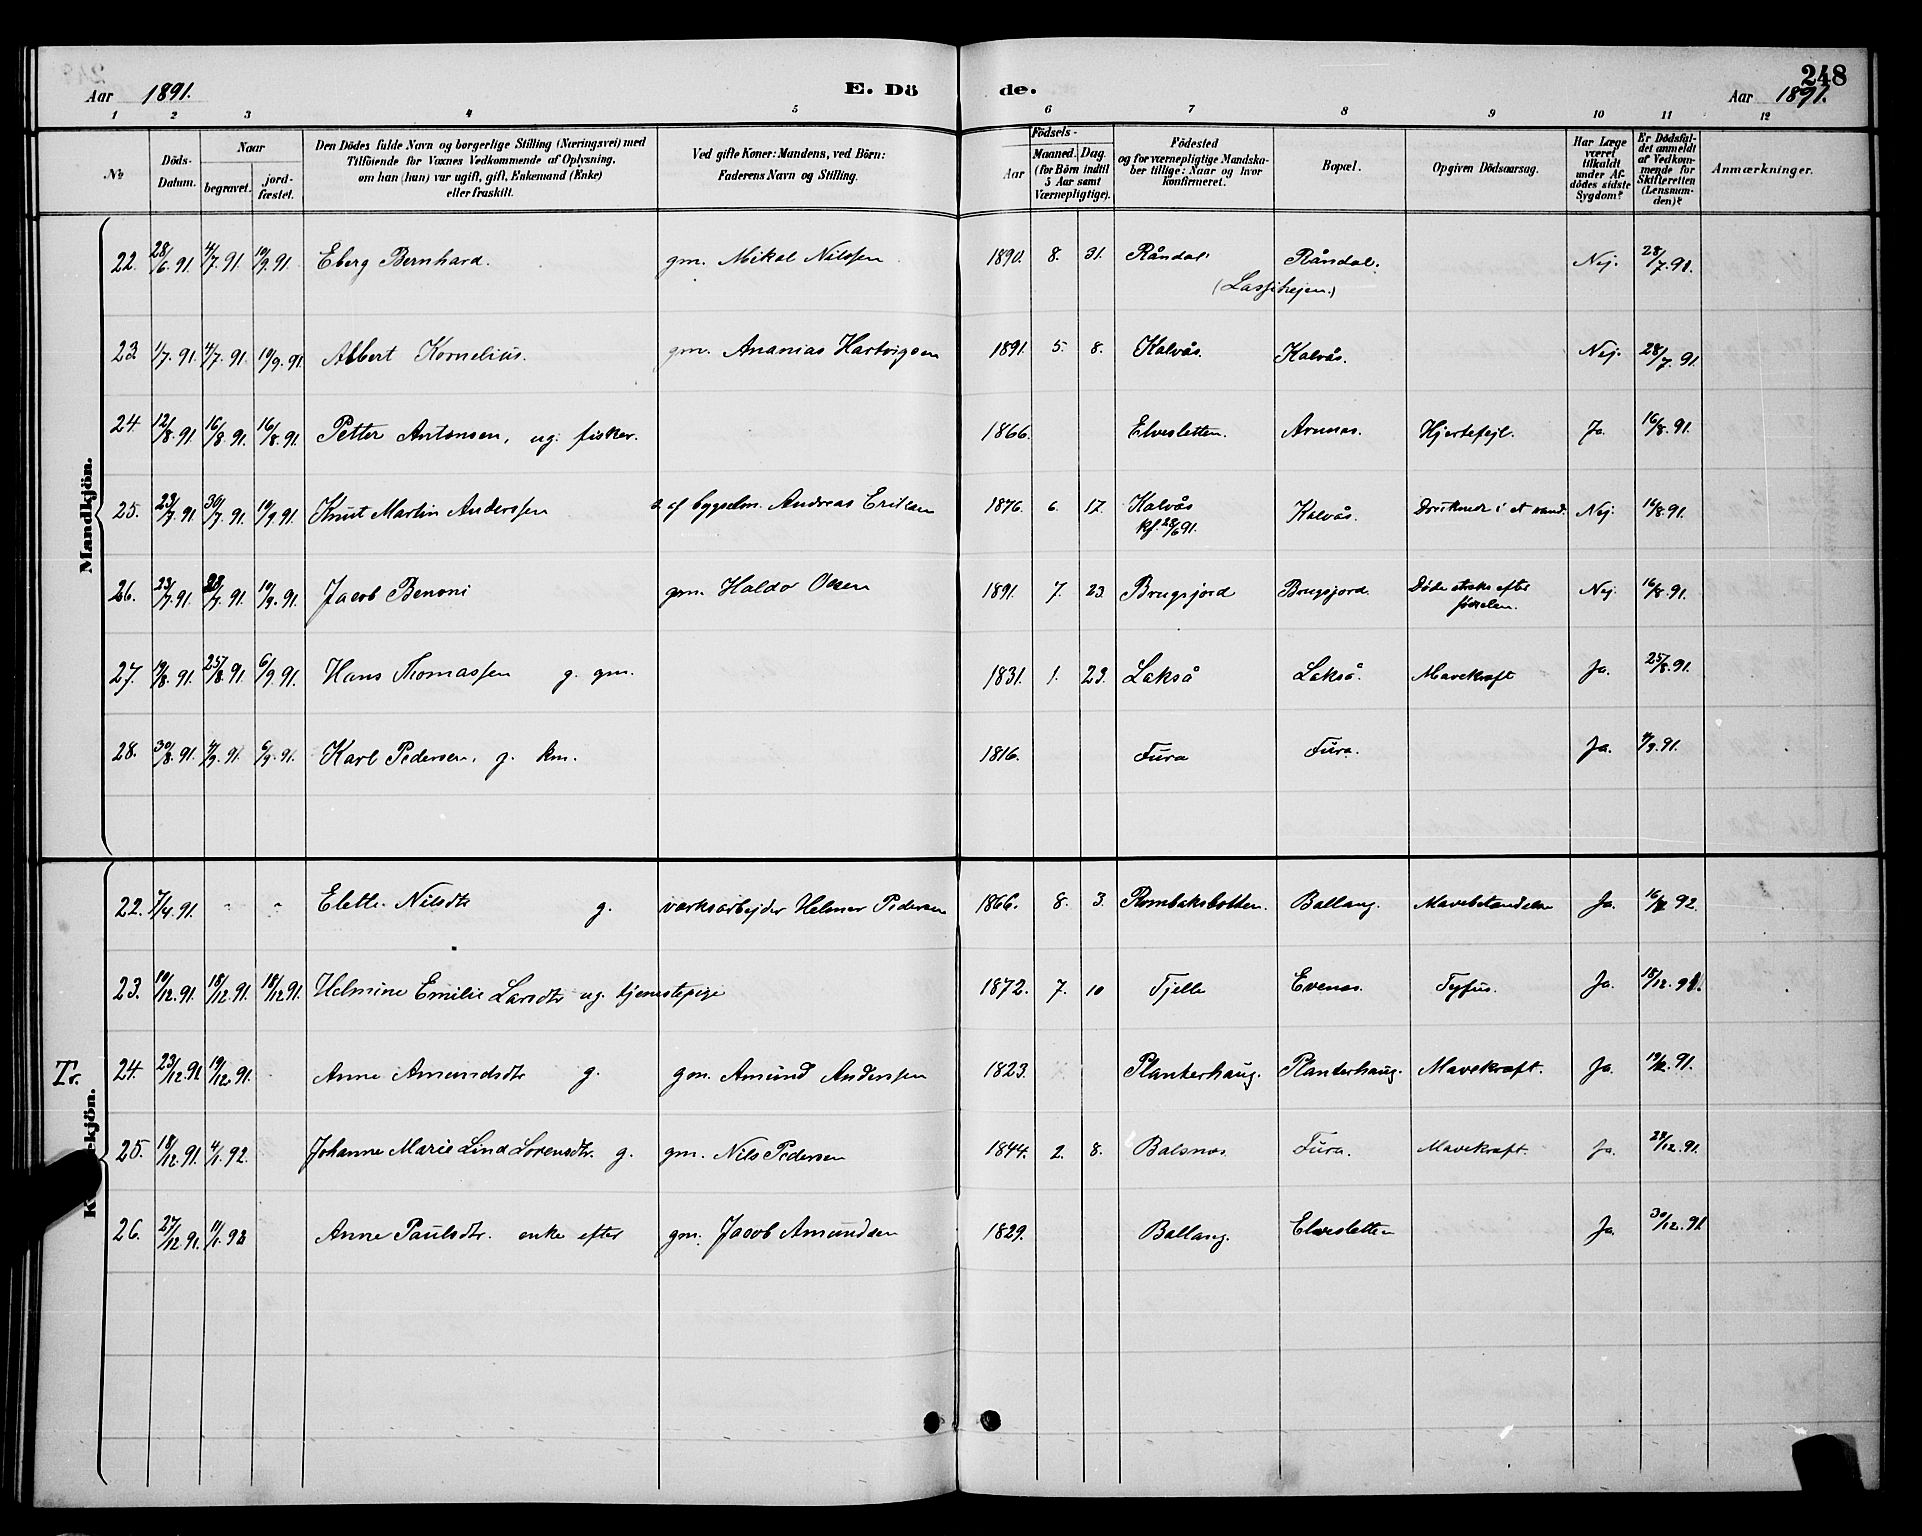 248
Aar 1891. E. Dö de. Aar 1891.
1 2 3 4 5 6 7 8 9 10 11 12
№ Döds-Datum. Naar begravet. jord-fæstet. Den Dödes fulde Navn og borgerlige Stilling (Næringsvei) med Tilföiende for Voxnes Vedkommende af Oplysning, om han (hun) var ugift, gift, Enkemand (Enke) eller fraskilt. Ved gifte Koner: Mandens, ved Börn: Faderens Navn og Stilling. Födsels- Aar Maaned. Dag (for Börn indtil 5 Aar samt Værnepligtige). Födested og for værnepligtige Mandskaber tillige: Naar og hvor konfirmeret. Bopæl. Opgiven Dödsaarsag. Har Læge været tilkaldt under Afdödes sidste Sygdom? Er Dödsfaldet anmeldt af Vedkommende for Skifteretten (Lensmanden)? Anmærkninger.
Mandkjön.
22. 28/6.91 4/7.91 19/9.91 Eberg Bernhard. gm. Mikal Nilssen 1890. 8. 31. Råndal. Råndal. Nej. 28/7.91.
23. 1/7.91 4/7.91 19/9.91 Albert Kornelius. gm. Ananias Hartvigsen 1891. 5. 8. Kalvås. Kalvås. Nej. 28/7.91
24. 12/8.91 16/8.91 16/8.91 Petter Antonsen, ug. fisker. 1866. Elvesletten. Arnnes. Hjertefejl. Ja. 16/8.91.
25. 23/7.91 30/7.91 19/9.91 Knut Martin Anderssen af bygselm. Andreas Eriksen 1876. 6. 17. Kalvås Kalvås. Druknede i et vand. Nej. 16/8.91.
kf. 28/6 91.
26. 23/7.91 28/7.91 19/9.91 Jacob Benoni gm. Haldo Olsen 1891. 7. 23. Brugsjord Brugsjord. Døde straks efter Nej. 16/8.91.
fødselen.
27. 19/8.91 25/8.91 6/9.91. Hans Thomassen g. gm. 1831. 1. 23. Lakså Lakså. Mavekræft Ja. 25/8.91.
28. 30/8.91 4/9.91 6/9.91. Karl Pedersen, g. km. 1816. Fura Fura. Ja. 4/9.91.
Tr.
22. 7/4.91. " " Elette Nilsdtr g. værksarbejder Helmer Pedersen 1866. 8. 3. Rombaksbotten. Ballang. Mavebetændelse Ja. 92.
23. 10/12.91. 18/12.91 18/12.91 Helmine Emilie Larsdtr ug. tjenestepige 1872. 7. 10 Tjelle Evenes. Tyfus. Ja. 18/12.91.
24. 23/12.91 19/12.91. Anne Amundsdtr g. gm. Amund Anderssen 1823. Planterhaug. Planterhaug. Mavekræft. Ja. 19/12.91.
25. 18/12.91. 4/1.92. Johanne Marie Lind Lorensdtr. g. gm. Nils Pedersen 1844. 2. 8. Balsnes. Fura. Mavekræft. Ja. 24/12.91.
26. 27/12.91. 11/1.92 Anne Paulsdtr. enke efter gm. Jacob Amundsen 1829. Ballang. Elvesletten Ja. 30/12.91